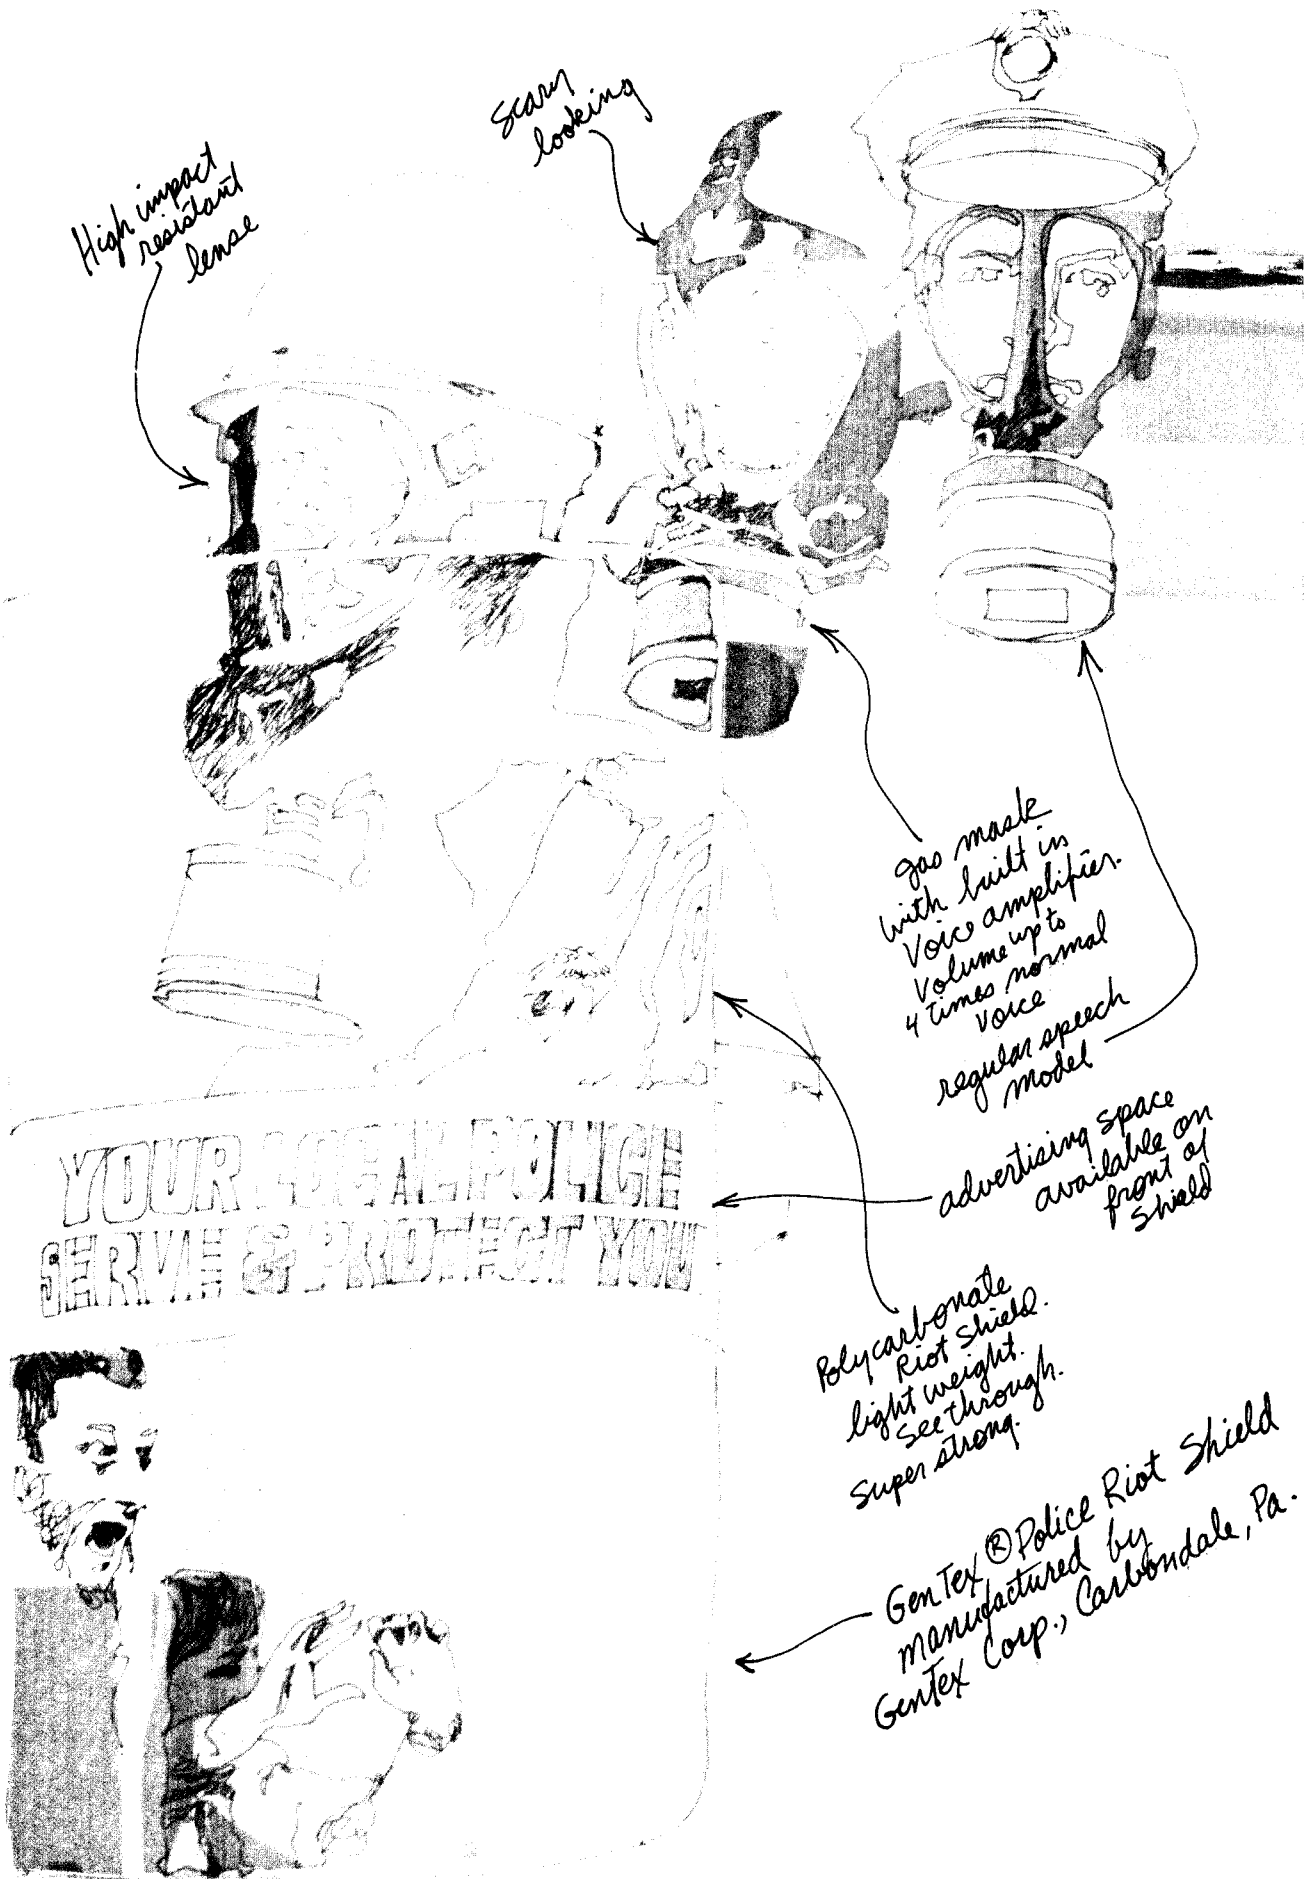 scary
looking
High impact
resistant
lense
gas mask
with built in
Voice amplifier.
Volume up to
4 times normal
voice
regular speech
model
advertising space
available on
front of
shield
YOUR LOCAL POLICE
SERVE & PROTECT YOU
Polycarbonate
Riot Shield.
light weight.
See through.
Super strong.
GenTex ® Police Riot Shield
manufactured by
GenTex Corp., Carbondale, Pa.